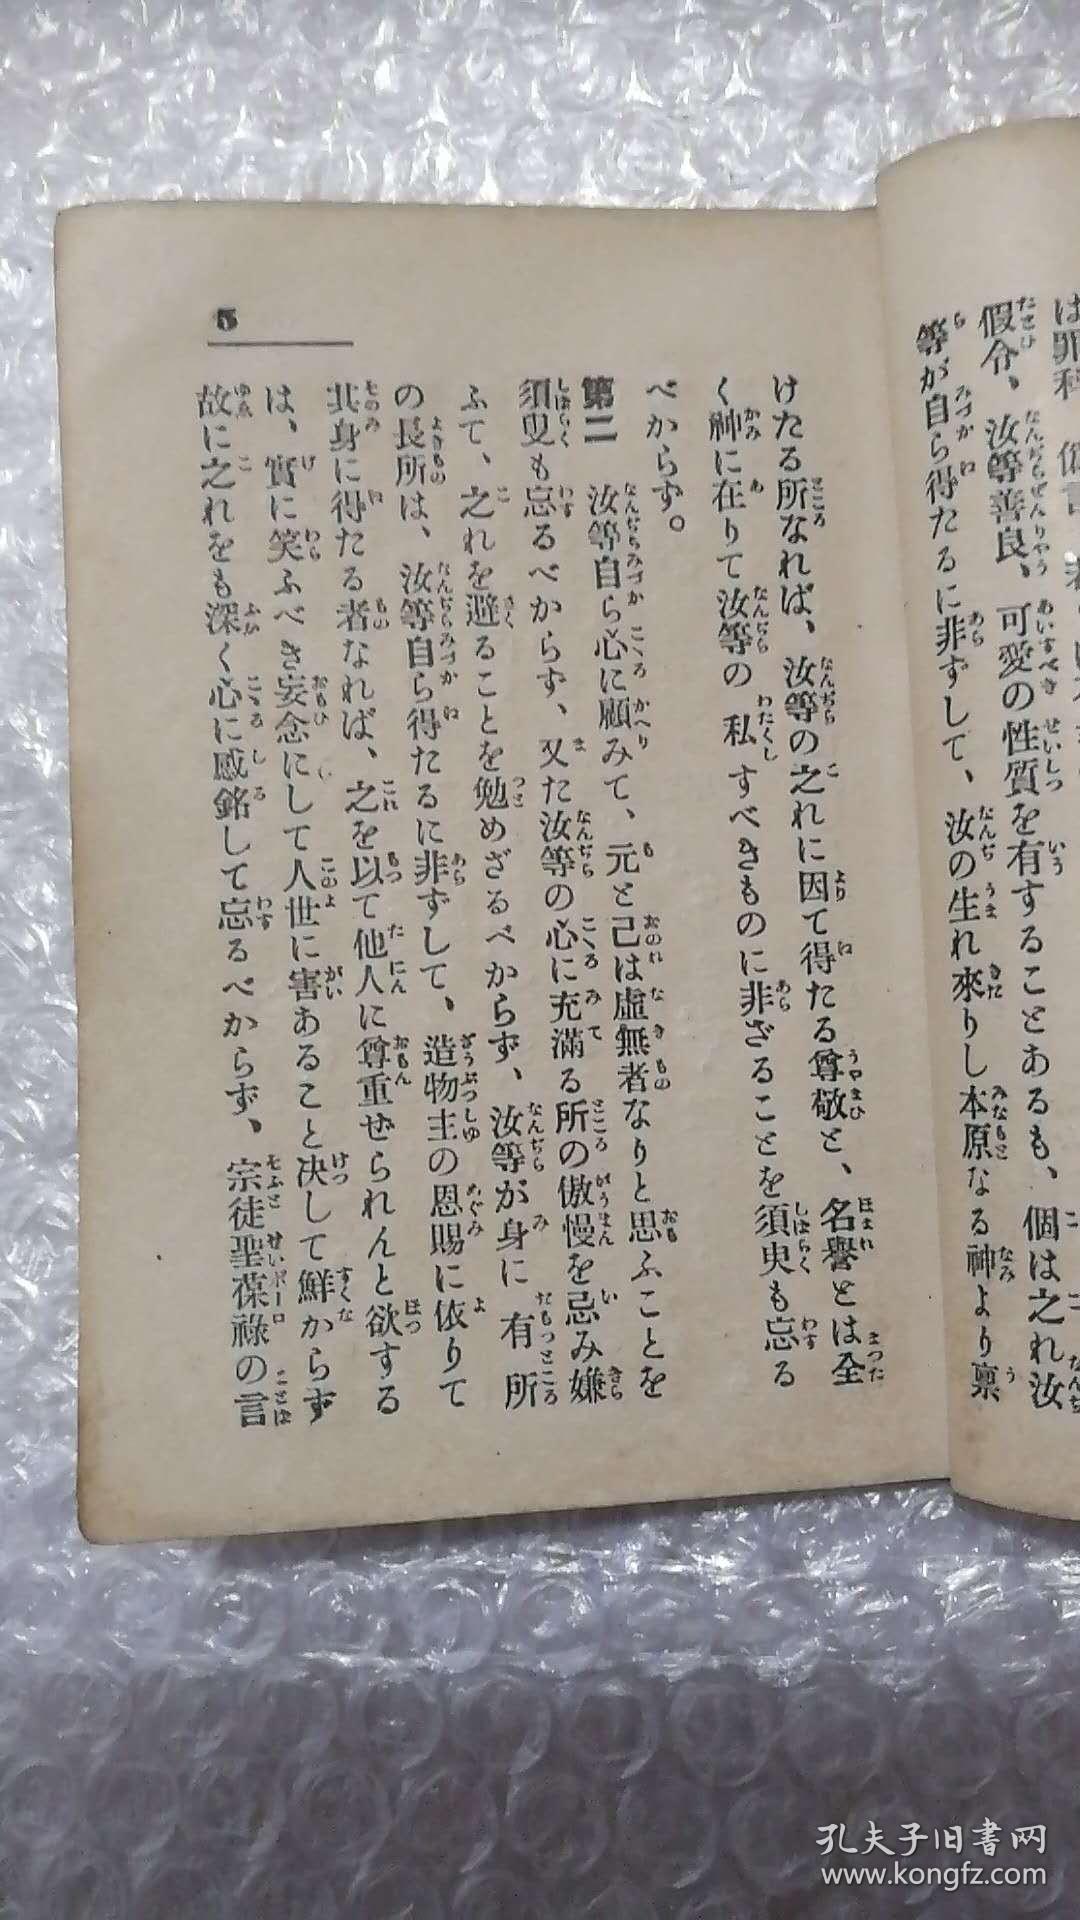 假令、汝等善良、可愛の性質を有することあるも、個は之れ汝
等が自ら得たるに非ずして、汝の生れ來りし本原なる神より禀
5
けたる所なれば、汝等の之れに因て得たる尊敬と、名譽とは全
く神に在りて汝等の私すべきものに非ざることを須臾も忘る
べからず。
第二 汝等自ら心に顧みて、元と己は虛無者なりと思ふことを
須臾も忘るべからず、又た汝等の心に充滿る所の傲慢を忌み嫌
ふて、之れを避ることを勉めざるべからず、汝等が身に有所
の長所は、汝等自ら得たるに非ずして、造物主の恩賜に依りて
其身に得たる者なれば、之を以て他人に尊重せられんと欲する
は、實に笑ふべき妄念にして人世に害あること决して鮮からず
故に之れをも深く心に感銘して忘るべからず、宗徒聖葆祿の言
孔夫子旧書网
www.kongfz.com